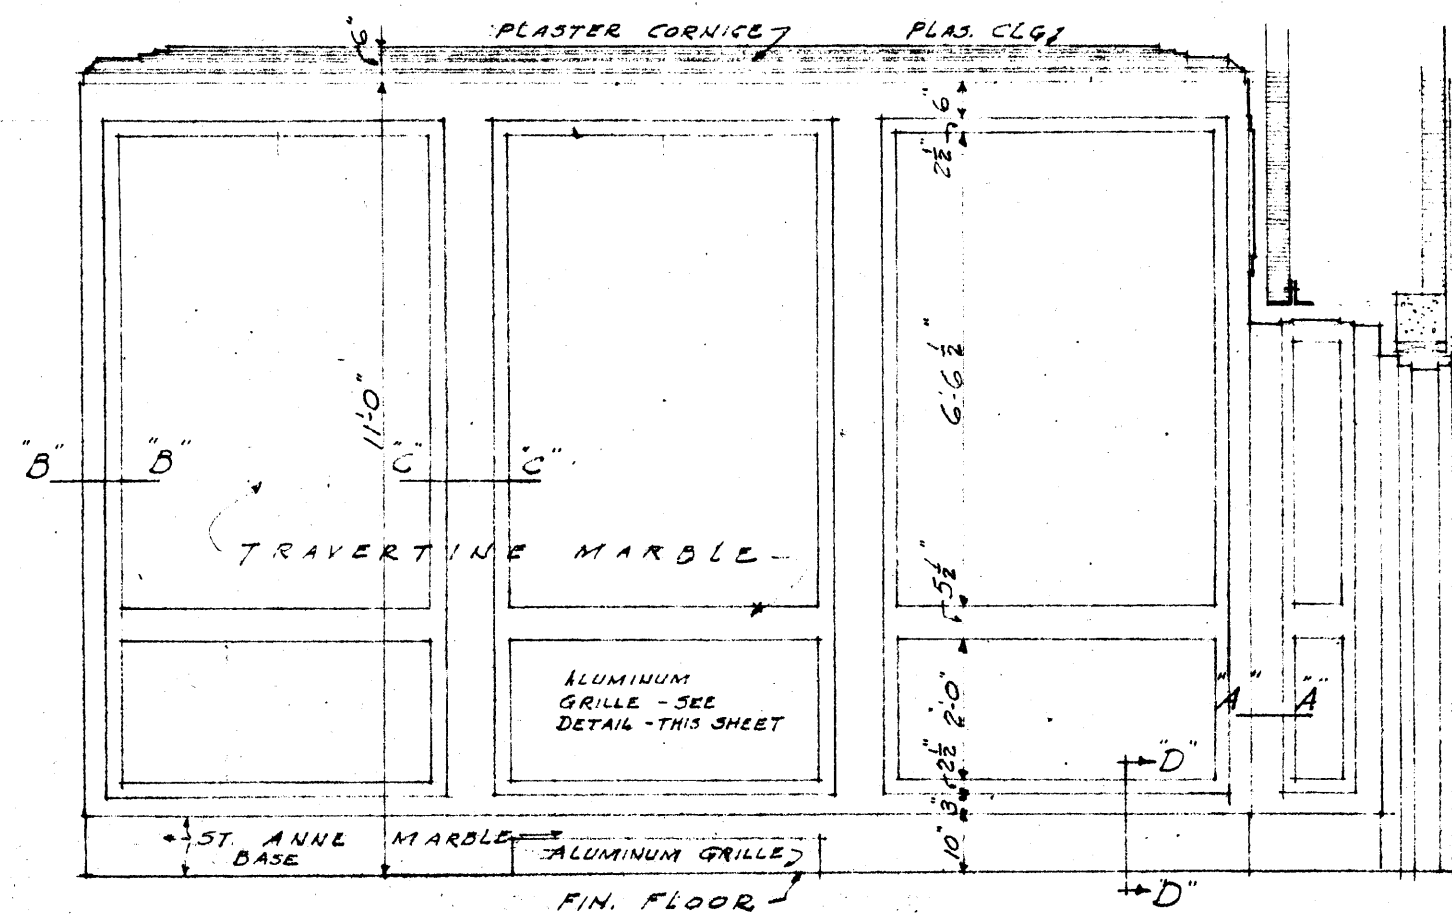 PLASTER CORNICE
PLAS. CLG.
6"
6"
2½"
11'-0"
6'-6½"
"B" "B"
"C" "C"
TRAVERTINE MARBLE
5½"
ALUMINUM
GRILLE - SEE
DETAIL - THIS SHEET
2'-0"
"A" "A"
2½"
"D"
3"
10"
ST. ANNE MARBLE
BASE
ALUMINUM GRILLE
FIN. FLOOR
"D"